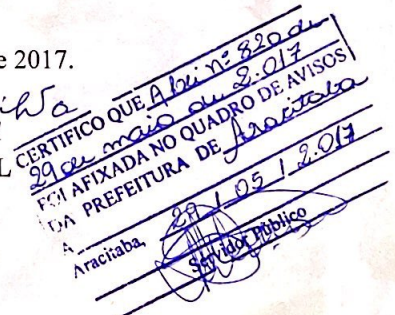 e 2017.
ilva
L
CERTIFICO QUE A Lei nº 820 de
29 de maio de 2.017
FOI AFIXADA NO QUADRO DE AVISOS
DA PREFEITURA DE Aracitaba
A
Aracitaba, 29 / 05 / 2.017
Servidor Público